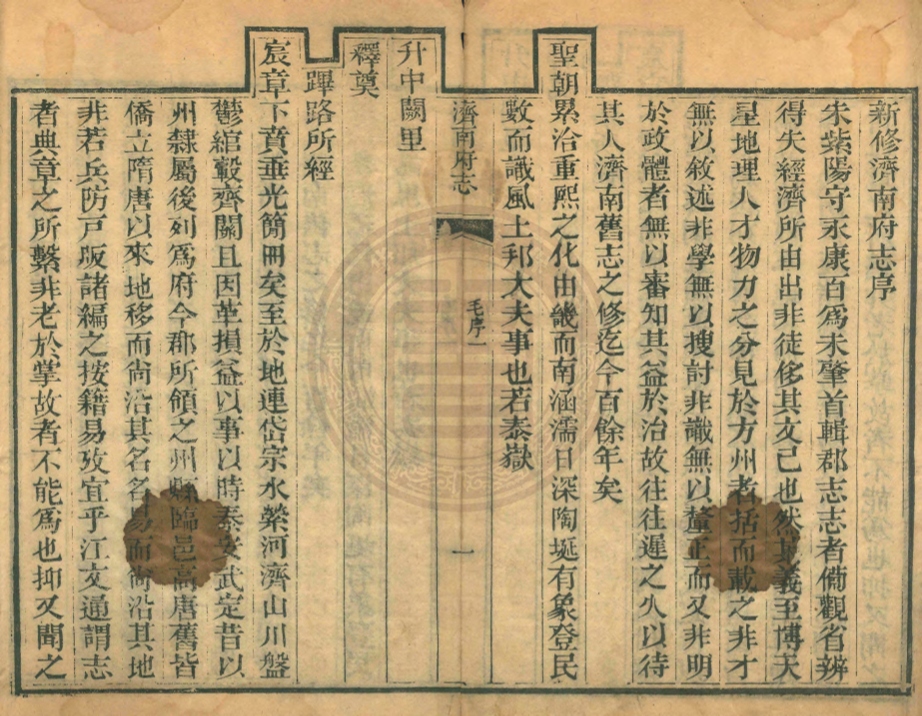 新修濟南府志序
朱紫陽守永康百爲未肇首輯郡志志者備觀省辨
得失經濟所由出非徒侈其文已也然其義至博天
星地理人才物力之分見於方州者括而載之非才
無以敘述非學無以搜討非識無以釐正而又非明
於政體者無以審知其益於治故往往遲之久以待
其人濟南舊志之修迄今百餘年矣
聖朝累洽重熙之化由畿而南涵濡日深陶埏有象登民
數而識風土邦大夫事也若泰嶽
濟南府志
毛序
一
升中闕里
釋奠
蹕路所經
宸章下賁垂光簡冊矣至於地連岱宗水縈河濟山川盤
鬱綰轂齊關且因革損益以事以時泰安武定昔以
州隸屬後列爲府今郡所領之州縣臨邑高唐舊皆
僑立隋唐以來地移而尚沿其名名易而尚沿其地
非若兵防戸版諸編之按籍易攷宜乎江文通謂志
者典章之所繫非老於掌故者不能爲也抑又聞之